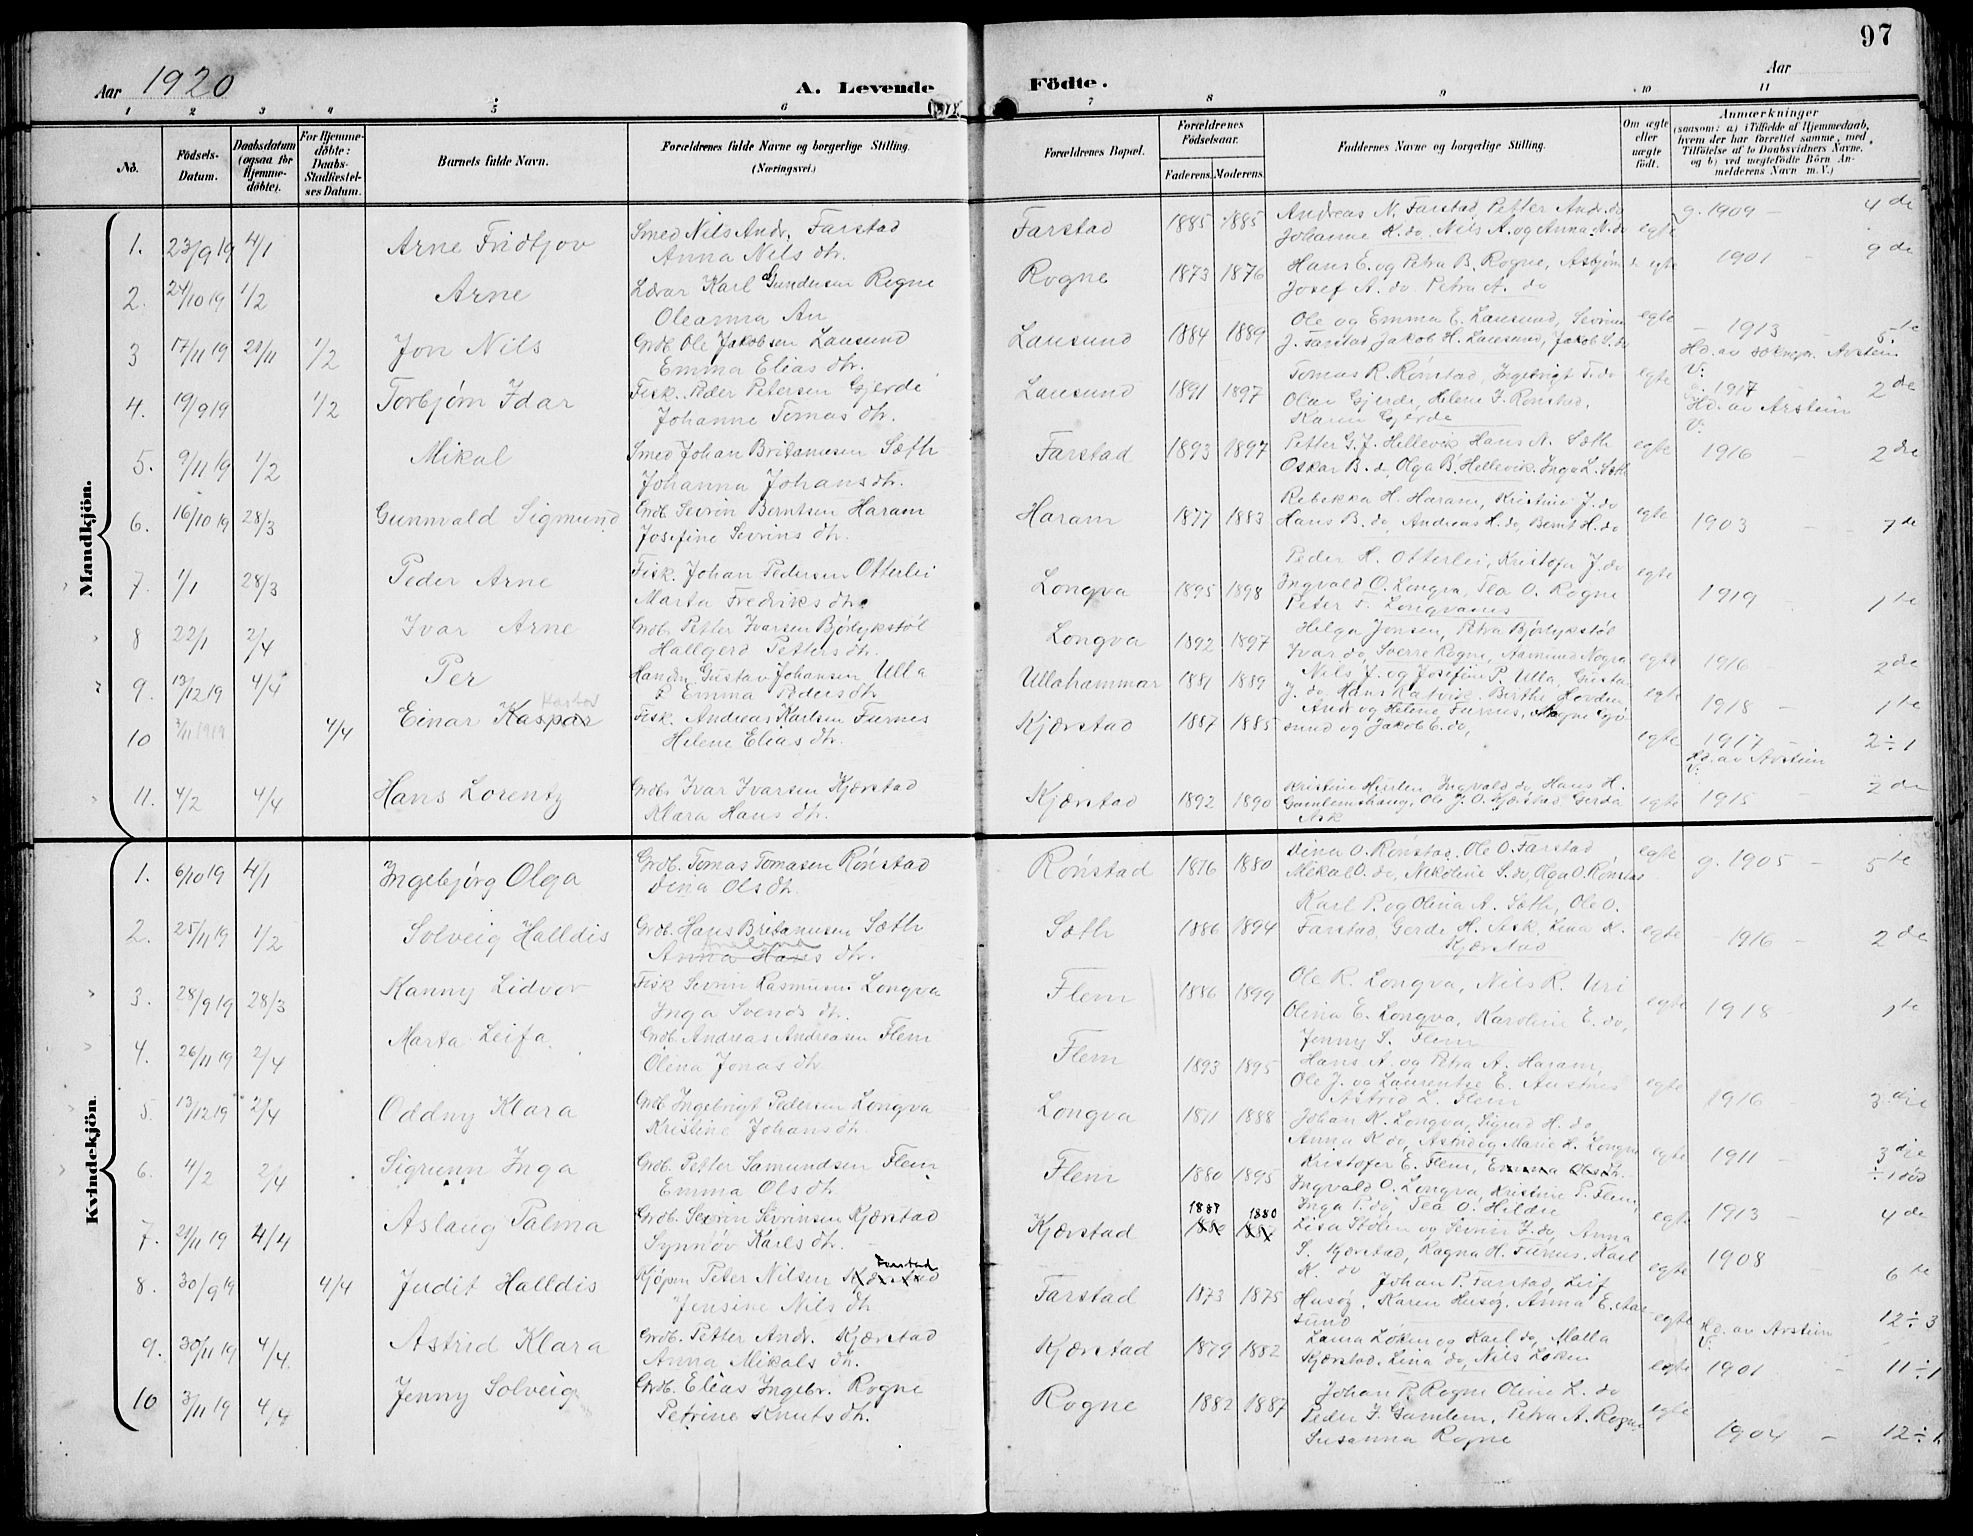 97
Aar 1920
A. Levende
Födte.
Aar
1 2 3 4 5 6 7 8 9 10 11
No.
Födsels-Datum.
Daabsdatum (ogsaa for Hjemmedöbte).
For Hjemmedöbte: Daabs-Stadfæstelses Datum.
Barnets fulde Navn.
Forældrenes fulde Navne og borgerlige Stilling.
(Næringsvei.)
Forældrenes Bopæl.
Forældrenes Födselsaar.
Faderens. Moderens.
Faddernes Navne og borgerlige Stilling.
Om ægte eller uægte födt.
Anmærkninger
(saasom: a) i Tilfælde af Hjemmedaab, hvem der har forrettet samme, med Tilföielse af to Daabsvidners Navne, og b) ved uegtefödte Börn Anmelderens Navn m. V.)
Mandkjön.
1. 23/9 19 4/1 Arne Fridtjov Smed Nils Andr. Farstad Farstad 1885 1885 Andreas N. Farstad, Petter Andr. do g. 1909 - 4 de
Anna Nils dtr. Johanne H. do, Nils A. og Anna N. do egte
2. 24/10 19 1/2 Arne Lærar Karl Gundersen Rogne Rogne 1873 1876 Hans E. og Petra B. Rogne, egte 1901 - 9 de
Oleanna An Josef A. do Petra A. do
3 17/11 19 21/11 1/2 Jon Nils Grdb. Ole Jakobsen Lausund Lausund 1884 1889 Ole og Emma E. Lausund, Sevrin egte - 1913 - 5 te
Emma Elias dtr. J. Farstad, Jakob H. Lausund, Jakob S. do Hd. av sokнepr. Arstein
4. 19/9 19 1/2 Torbjørn Idar Fisk. Peder Petersen Gjerde Lausund 1891 1897 Tomas R. Rønstad, Ingebrigt T. do egte g. 1917 2 de
Johanne Tomas dtr. Olav Gjerde, Helene J. Rønstad, Hd. av Arstein
Karen Gjerde
5. 9/11 19 1/2 Mikal Smed Johan Britanusen Sæth Farstad 1893 1897 Petter G. J. Hellevik Hans N. Sæth egte 1916 2 dre
Johanna Johans dtr. Oskar B. do Olga B. Hellevik, Inga L. Sæth
6. 16/10 19 28/3 Gunnvald Sigmund Grdb. Sevrin Berntsen Haram Haram 1877 1883 Rebekka H. Haram, Kristine J. do egte 1903 - 7 de
Josefine Sevrins dtr. Hans B. do, Andreas H. do, Bernt H. do
7. 1/1 28/3 Peder Arne Fisk. Johan Pedersen Otterlei Longva 1895 1898 Peder H. Otterlei, Kristofa J. do egte 1919 - 1 te
Marta Fredriks dtr. Ingvald O. Longva, Tea O. Rogne
Peter F. Longvanes
8 22/1 2/4 Ivar Arne Grdb. Petter Ivarsen Bjørlykstøl Longva 1892 1897 Helga Jensen, Petra Bjørlykstøl egte 1916 2 de
Hallgerd Petters dtr. Ivar do, Sverre Rogne,
9. 13/12 19 4/4 Per Gustav Johansen Ulla Ullahammar 1881 1889 Nils J. og Josefine P. Ulla, Gustav egte 1918 - 1 te
Emma Peders dtr J. do, Hans Ratvik, Berthe Hovden
10 3/11 1919 4/4 Einar Kaspar Fisk. Andreas Karlsen Furnes Kjærstad 1887 1885 Andr og Helene Furnes, egte 1917 - 2 ÷ 1
Helene Elias dtr. sund og Jakob E. do, Hd. av Arstein
11. 4/2 4/4 Hans Lorentz Grdb. Ivar Ivarsen Kjærstad Kjærstad 1892 1890 Ingvald do, Hans H. egte 1915 - 2 de
Klara Hans dtr. Gamlemshaug, Ole J. O. Kjærstad, Gerda
Ask
Kvindekjön.
1. 6/10 19 4/1 Ingebjørg Olga Grdb. Tomas Tomasen Rønstad Rønstad 1876 1880 Dina O. Rønstad, Ole O. Farstad egte g. 1905 - 5 te
Dina Ols dtr. Mikal O. do, Nikoline S. do, Olga O. Rønstad
2. 25/11 19 1/2 Solveig Halldis Grdb. Hans Britanusen Sæth Sæth 1886 1894 Karl P. og Olina A. Sæth, Ole O. egte - 1916 - 2 de
Anna Hans dtr. Farstad, Gerde H. Ask, Lina K.
Kjærstad
3. 28/9 19 28/3 Kanny Lidvor Fisk Sevrin Rasmusen Longva Flem 1886 1899 Ole R. Longva, Nils R. Uri egte 1918 - 1 te
Inga Svends dtr. Olina E. Longva, Karoline E. do,
Jenny S. Flem
4. 26/11 19 2/4 Marta Leifa Grdb. Andreas Andreasen Flem Flem 1893 1895 Hans A. og Petra A. Haram, egte 1916 - 3 dje
Olina Jonas dtr Ole J. og Laurentse E. Austnes
Astrid L. Flem
5. 13/12 19 2/4 Oddny Klara Grdb Ingebrigt Pedersen Longva Longva 1871 1888 Johan K. Longva, Sigrid H. do, egte 1911 - 3 dje
Kristine Johans dtr. Anna K. do, Astridig Marie H. Longva ÷ 1 død
6. 4/2 2/4 Sigrunn Inga Grdb. Petter Samundsen Flem Flem 1880 1895 Kristofer E. Flem, Emma Ols dtr. egte 1913 - 4 de
Emma Ols dtr Ingvald O. Longva, Kristine P. Flem,
Inga P. do, Tea O. Hildre
7. 21/11 19 4/4 Aslaug Palma Grdb. Sevrin Sevrinsen Kjærstad Kjærstad 1887 1880 Lisa Stølen og Sevrin J. do, Anna egte 1908 6 te
Synnøv Karls dtr. S. Kjærstad, Ragna H. Furnes, Karl
K. do
8. 30/9 19 4/4 Judit Halldis Kjøpm Peter Nilsen Kjærstad Farstad Farstad 1873 1875 Johan P. Farstad, Leif egte Hd. av Arstein 12 ÷ 3
Jensine Nils dtr. Husøy, Karen Husøy, Anna E. Aar
sund
9. 30/11 19 4/4. Astrid Klara Grdb. Petter Andr. Kjærstad Kjærstad 1879 1882 Laura Løken og Karl do, Malla egte 1901 11 ÷ 1
Anna Mikals dtr. Kjærstad, Lina do, Nils Løken
10 3/11 19 4/4 Jenny Solveig Grdb. Elias Ingebr. Rogne Rogne 1882 1887 Johan P. Rogne Oline L. do egte 1904 - 12 ÷ 1
Petrine Knuts dtr. Peder J. Gamlem, Petra A. Rogne
Susanna Rogne